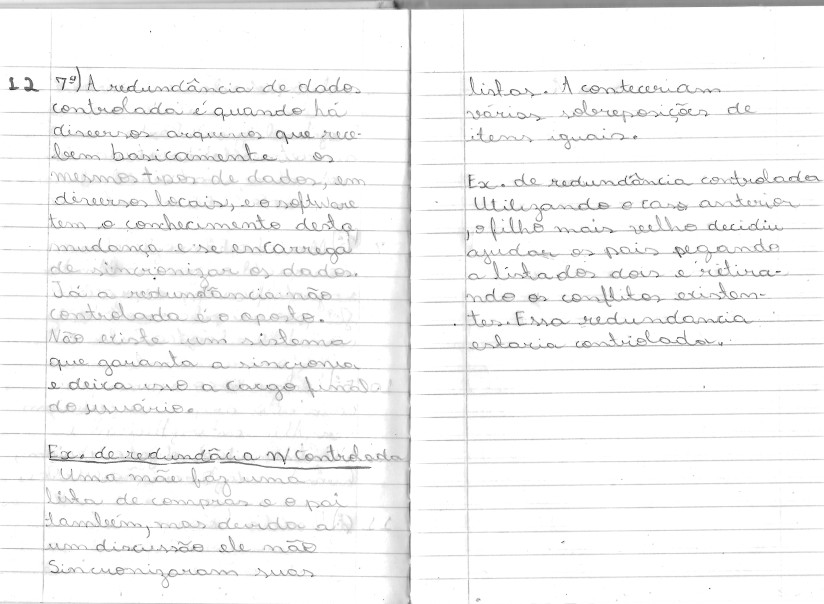 12 7º) A redundância de dados
controlada é quando há
diversos arquivos que rece-
bem basicamente os
mesmos tipos de dados, em
diversos locais, e o software
tem o conhecimento desta
mudança e se encarrega
de sincronizar os dados.
Já a redundância não
controlada é o oposto.
Não existe um sistema
que garanta a sincronia
e deixa isso a cargo final
do usuário.
Ex. de redundâcia ñ/ controlada
Uma mãe faz uma
lista de compras e o pai
também, mas devido a
um discussão ele não
Sincronizaram suas
listas. Aconteceriam
várias sobreposições de
itens iguais.
Ex. de redundância controlada
Utilizando o caso anterior
, o filho mais velho decidiu
ajudar os pais pegando
a lista dos dois e retira-
ndo os conflitos existen-
tes. Essa redundancia
estaria controlada.